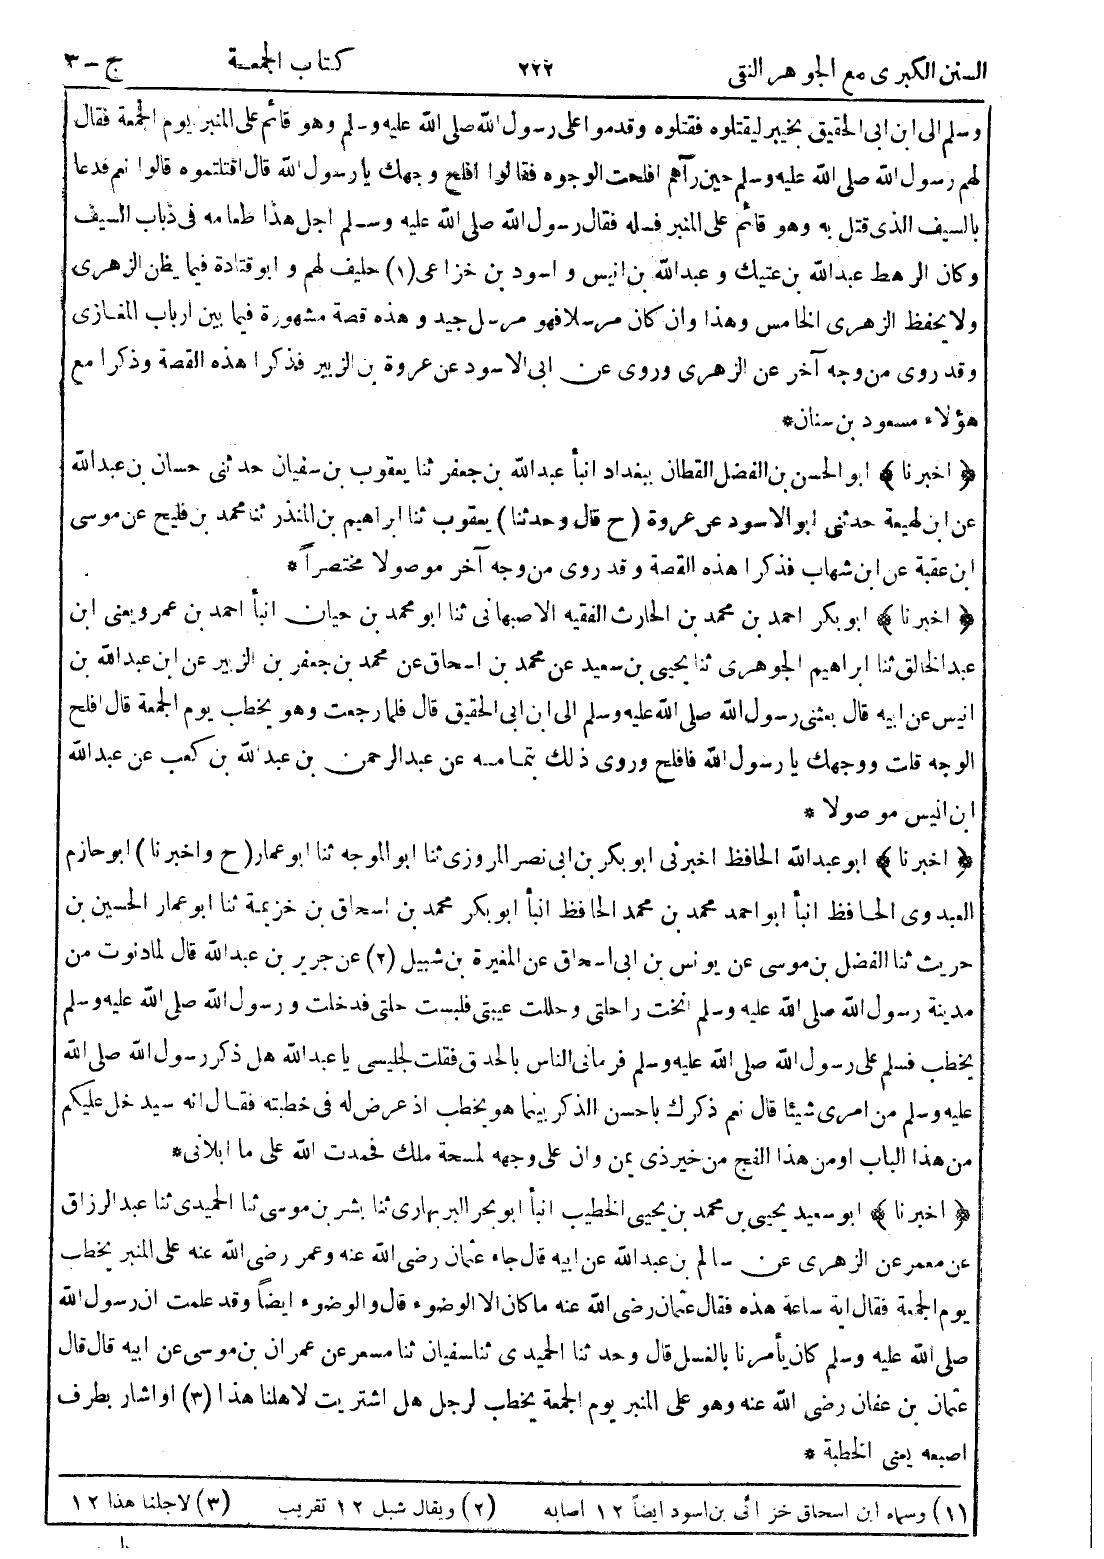 السنن الكبرى مع الجوهر النقى ٢٢٢ كتاب الجمعة ج - ٣
وسلم الى ابن ابى الحقيق بخيبر ليقتلوه فقتلوه وقدموا على رسول الله صلى الله عليه وسلم وهو قائم على المنبر يوم الجمعة فقال
لهم رسول الله صلى الله عليه وسلم حين رآهم افلحت الوجوه فقالوا افلح وجهك يا رسول الله قال اقتلتموه قالوا نعم فدعا
بالسيف الذى قتل به وهو قائم على المنبر فسله فقال رسول الله صلى الله عليه وسلم اجل هذا طعامه فى ذباب السيف
وكان الرهط عبدالله بن عتيك و عبدالله بن انيس و اسود بن خزاعى (١) حليف لهم و ابو قتادة فيما يظن الزهرى
ولا يحفظ الزهرى الخامس وهذا وان كان مرسلا فهو مرسل جيد و هذه قصة مشهورة فيما بين ارباب المغازى
وقد روى من وجه آخر عن الزهرى وروى عن ابى الاسود عن عروة بن الزبير فذكرا هذه القصة وذكرا مع
هؤلاء مسعود بن سنان *
﴿ اخبرنا ﴾ ابو الحسن بن الفضل القطان ببغداد انبأ عبدالله بن جعفر ثنا يعقوب بن سفيان حدثنى حسان بن عبدالله
عن ابن لهيعة حدثنى ابو الاسود عن عروة ( ح قال وحدثنا ) يعقوب ثنا ابراهيم بن المنذر ثنا محمد بن فليح عن موسى
ابن عقبة عن ابن شهاب فذكرا هذه القصة و قد روى من وجه آخر موصولا مختصراً *
﴿ اخبرنا ﴾ ابو بكر احمد بن محمد بن الحارث الفقيه الاصبهانى ثنا ابو محمد بن حيان انبأ احمد بن عمرو يعنى ابن
عبد الخالق ثنا ابراهيم الجوهرى ثنا يحيى بن سعيد عن محمد بن اسحاق عن محمد بن جعفر بن الزبير عن ابن عبدالله بن
انيس عن ابيه قال بعثنى رسول الله صلى الله عليه وسلم الى ابن ابى الحقيق قال فلما رجعت وهو يخطب يوم الجمعة قال افلح
الوجه قلت ووجهك يا رسول الله فافلح وروى ذلك بتمامه عن عبدالرحمن بن عبدالله بن كعب عن عبدالله
ابن انيس موصولا *
﴿ اخبرنا ﴾ ابو عبدالله الحافظ اخبرنى ابو بكر بن ابى نصر المروزى ثنا ابو الموجه ثنا ابو عمار ( ح واخبرنا ) ابو حازم
العبدوى الحافظ انبأ ابو احمد محمد بن محمد الحافظ انبأ ابو بكر محمد بن اسحاق بن خزيمة ثنا ابو عمار الحسين بن
حريث ثنا الفضل بن موسى عن يونس بن ابى اسحاق عن المغيرة بن شبيل (٢) عن جرير بن عبدالله قال لما دنوت من
مدينة رسول الله صلى الله عليه وسلم انخت راحلتى وحللت عيبتى فلبست حلتى فدخلت و رسول الله صلى الله عليه وسلم
يخطب فسلم على رسول الله صلى الله عليه وسلم فرمانى الناس بالحدق فقلت لجليسى يا عبدالله هل ذكر رسول الله صلى الله
عليه وسلم من امرى شيئا قال نعم ذكرك باحسن الذكر بينما هو يخطب اذ عرض له فى خطبته فقال انه سيدخل عليكم
من هذا الباب او من هذا الفج من خير ذى يمن وان على وجهه لمسحة ملك فحمدت الله على ما ابلانى *
﴿ اخبرنا ﴾ ابو سعيد يحيى بن محمد بن يحيى الخطيب انبأ ابو بحر البربهارى ثنا بشر بن موسى ثنا الحميدى ثنا عبد الرزاق
عن معمر عن الزهرى عن سالم بن عبدالله عن ابيه قال جاء عثمان رضى الله عنه وعمر رضى الله عنه على المنبر يخطب
يوم الجمعة فقال اية ساعة هذه فقال عثمان رضى الله عنه ما كان الا الوضوء قال والوضوء ايضاً وقد علمت ان رسول الله
صلى الله عليه وسلم كان يأمرنا بالغسل قال وحدثنا الحميدى ثنا سفيان ثنا مسعر عن عمران بن موسى عن ابيه قال قال
عثمان بن عفان رضى الله عنه وهو على المنبر يوم الجمعة يخطب لرجل هل اشتريت لاهلنا هذا (٣) او اشار بطرف
اصبعه يعنى الخطبة *
(١) وسماه ابن اسحاق خزاعى بن اسود ايضاً ١٢ اصابه (٢) ويقال شبل ١٢ تقريب (٣) لاجلنا هذا ١٢